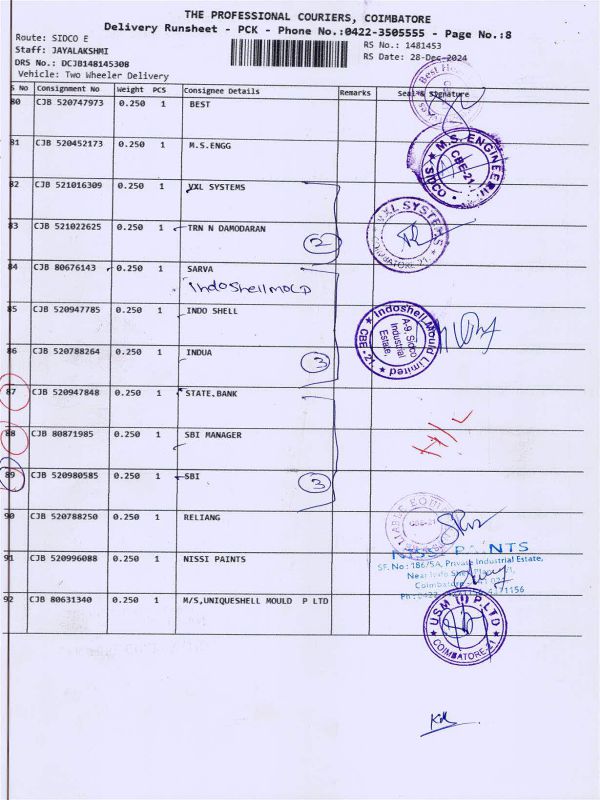 THE PROFESSIONAL COURIERS, COIMBATORE
Delivery Runsheet - PCK - Phone No.:0422-3505555 - Page No.:8
Route: SIDCO E
RS No.: 1481453
Staff: JAYALAKSHMI
RS Date: 28-Dec-2024
DRS No.: DCJB148145308
Vehicle: Two Wheeler Delivery
S No Consignment No Weight PCS Consignee Details Remarks Seal & Signature
80 CJB 520747973 0.250 1 BEST
81 CJB 520452173 0.250 1 M.S.ENGG
M.S. ENGINEE
CBE-21
SIDCO
82 CJB 521016309 0.250 1 VXL SYSTEMS
VXL SYSTEMS
COIMBATORE-21
83 CJB 521022625 0.250 1 TRN N DAMODARAN
2
84 CJB 80676143 0.250 1 SARVA
Indo Shell MOLD
85 CJB 520947785 0.250 1 INDO SHELL
Indoshell Mould Limited
A-9, Sidco
Industrial
Estate,
CBE - 21.
86 CJB 520788264 0.250 1 INDUA
3
87 CJB 520947848 0.250 1 STATE.BANK
88 CJB 80871985 0.250 1 SBI MANAGER
89 CJB 520980585 0.250 1 SBI
3
90 CJB 520788250 0.250 1 RELIANG
CBE-21
91 CJB 520996088 0.250 1 NISSI PAINTS
NISSI PAINTS
SF. No : 186/5A, Private Industrial Estate,
Coimbatore
92 CJB 80631340 0.250 1 M/S,UNIQUESHELL MOULD P LTD
USM (I) P.LTD
COIMBATORE-21